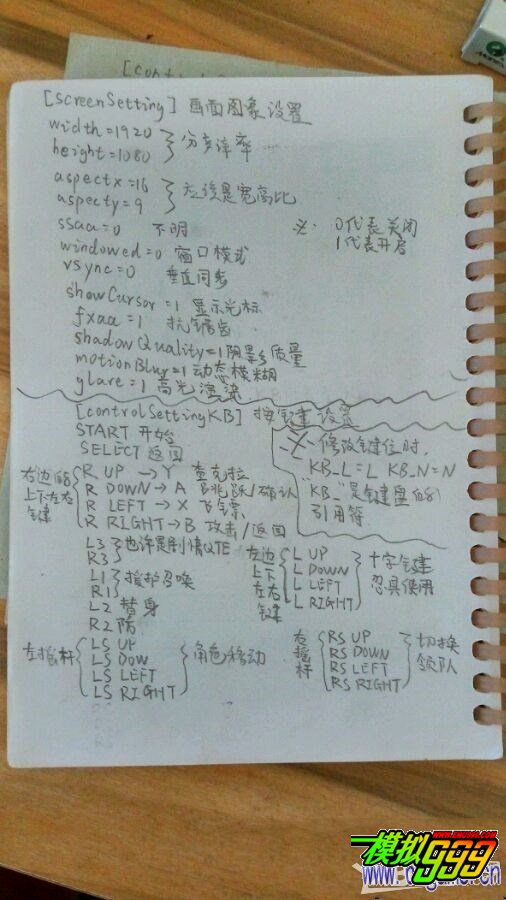 [cont
[ScreenSetting] 画面图象设置
width=1920
height=1080
分辨率
aspectx=16
aspecty=9
应该是宽高比
ssaa=0 不明
※. 0代表关闭
1代表开启
windowed=0 窗口模式
vsync=0 垂直同步
showCursor=1 显示光标
fxaa=1 抗锯齿
shadowQuality=1阴影质量
motionBlur=1动态模糊
glare=1高光渲染
[controlSettingKB] 按键设置
START 开始
SELECT 返回
※ 修改键位时,
KB_L=L KB_N=N
"KB_"是键盘的
引用符
右边的
上下左右
键
R UP →Y 查克拉
R DOWN→A 跳跃/确认
R LEFT→X 飞镖
R RIGHT→B 攻击/返回
L3
R3
也许是剧情QTE
L1
R1
援护召唤
L2 替身
R2 防
左边
上下
左右
键
L UP
L DOWN
L LEFT
L RIGHT
十字键
忍具使用
左摇杆
LS UP
LS DOW
LS LEFT
LS RIGHT
角色移动
右
摇
杆
RS UP
RS DOWN
RS LEFT
RS RIGHT
切换
领队
模拟999